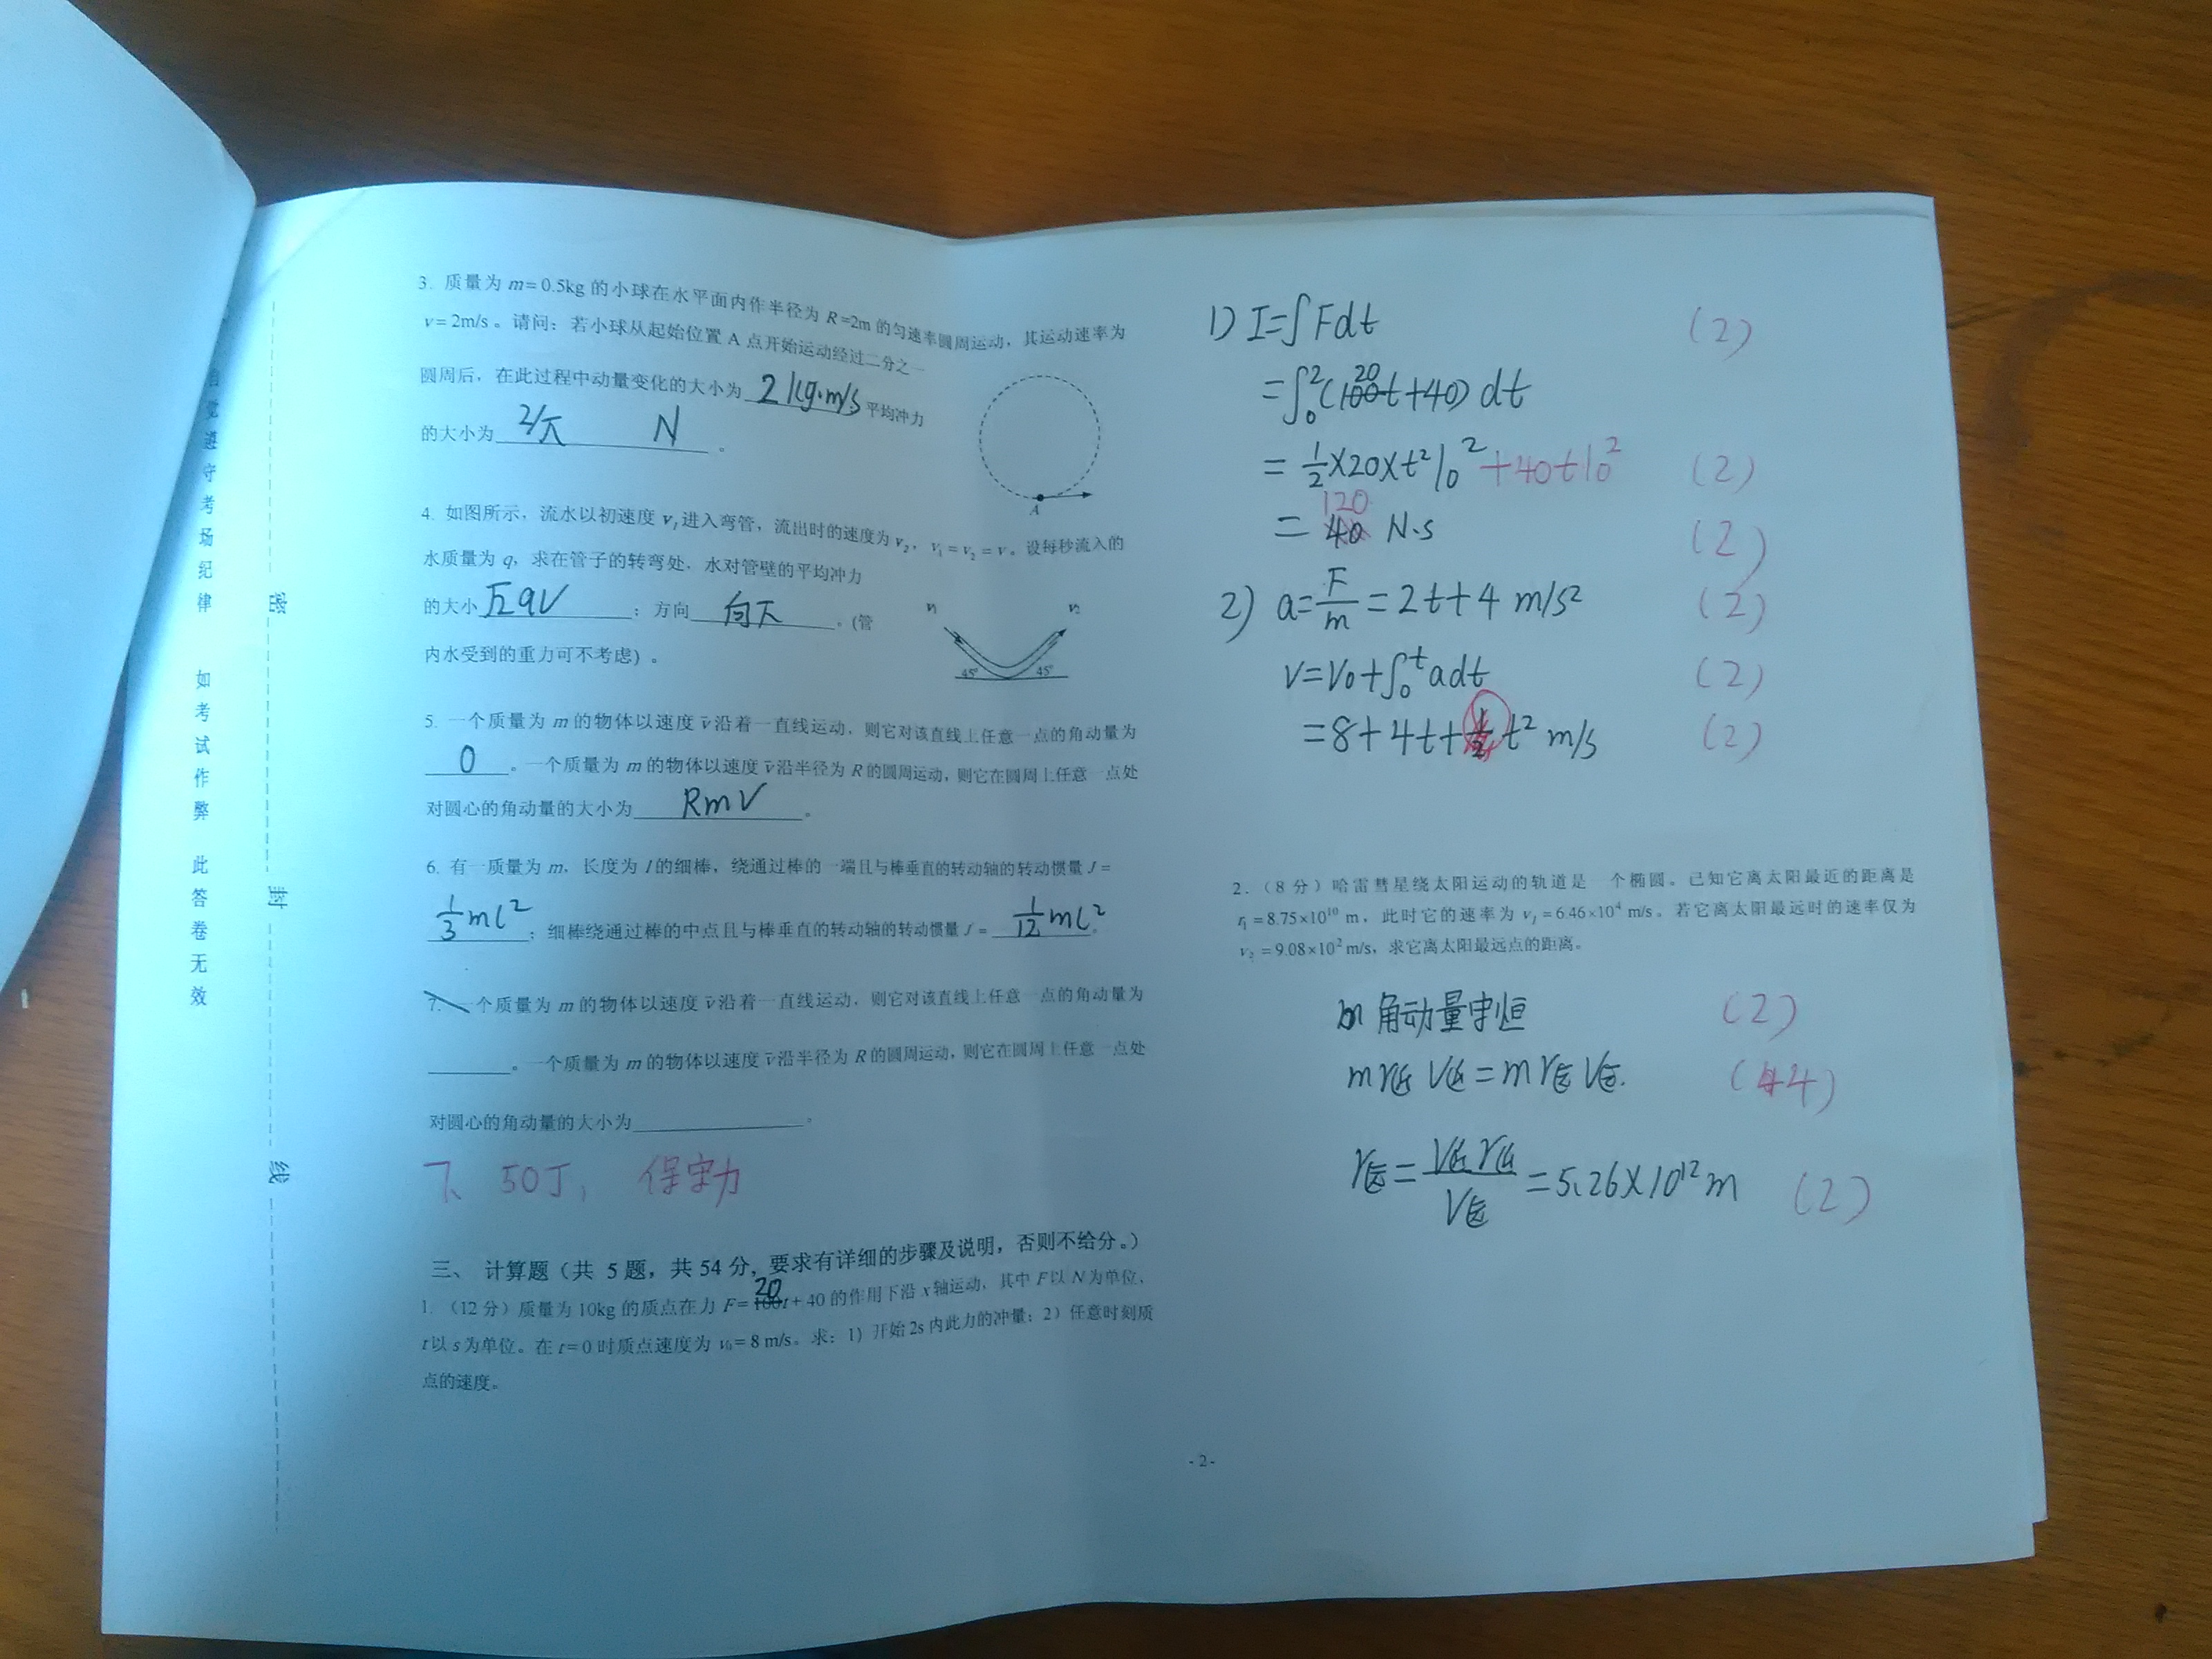 自觉遵守考场纪律 如考试作弊 此答卷无效
密 封 线
3. 质量为 m= 0.5kg 的小球在水平面内作半径为 R=2m 的匀速率圆周运动，其运动速率为
v= 2m/s 。请问：若小球从起始位置 A 点开始运动经过二分之一
圆周后，在此过程中动量变化的大小为 2 kg·m/s 平均冲力
的大小为 2/π N 。
A
4. 如图所示，流水以初速度 v₁ 进入弯管，流出时的速度为 v₂，v₁ = v₂ = v。设每秒流入的
水质量为 q，求在管子的转弯处，水对管壁的平均冲力
的大小 √2qV ；方向 向下 。(管
内水受到的重力可不考虑) 。
v₁ v₂
45° 45°
5. 一个质量为 m 的物体以速度 v⃗ 沿着一直线运动，则它对该直线上任意一点的角动量为
0 。一个质量为 m 的物体以速度 v⃗ 沿半径为 R 的圆周运动，则它在圆周上任意一点处
对圆心的角动量的大小为 RmV 。
6. 有一质量为 m，长度为 l 的细棒，绕通过棒的一端且与棒垂直的转动轴的转动惯量 J =
1/3 ml² ；细棒绕通过棒的中点且与棒垂直的转动轴的转动惯量 J = 1/12 ml² 。
7. 一个质量为 m 的物体以速度 v⃗ 沿着一直线运动，则它对该直线上任意一点的角动量为
。一个质量为 m 的物体以速度 v⃗ 沿半径为 R 的圆周运动，则它在圆周上任意一点处
对圆心的角动量的大小为 。
7、 50J， 保守力
三、 计算题（共 5 题，共 54 分，要求有详细的步骤及说明，否则不给分。）
1. （12 分）质量为 10kg 的质点在力 F= 20 100t + 40 的作用下沿 x 轴运动，其中 F 以 N 为单位，
t 以 s 为单位。在 t = 0 时质点速度为 v₀ = 8 m/s。求：1）开始 2s 内此力的冲量；2）任意时刻质
点的速度。
1) I=∫Fdt (2)
=∫₀²(20 100t+40) dt
= 1/2×20×t²|₀² +40t|₀² (2)
= 120 40 N·s (2)
2) a=F/m=2t+4 m/s² (2)
V=V₀+∫₀ᵗadt (2)
=8+4t+1/2t² m/s (2)
2．（8 分）哈雷彗星绕太阳运动的轨道是一个椭圆。已知它离太阳最近的距离是
r₁ = 8.75×10¹⁰ m，此时它的速率为 v₁ = 6.46×10⁴ m/s。若它离太阳最远时的速率仅为
v₂ = 9.08×10² m/s，求它离太阳最远点的距离。
角动量守恒 (2)
m r近 V近 = m r远 V远. (4)
r远 = V近 r近/V远 = 5.26×10¹² m (2)
- 2 -